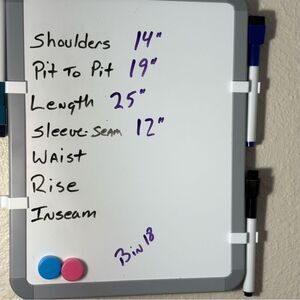 Shoulders 14"
Pit To Pit 19"
Length 25"
Sleeve-Seam 12"
Waist
Rise
Inseam
Bin 18